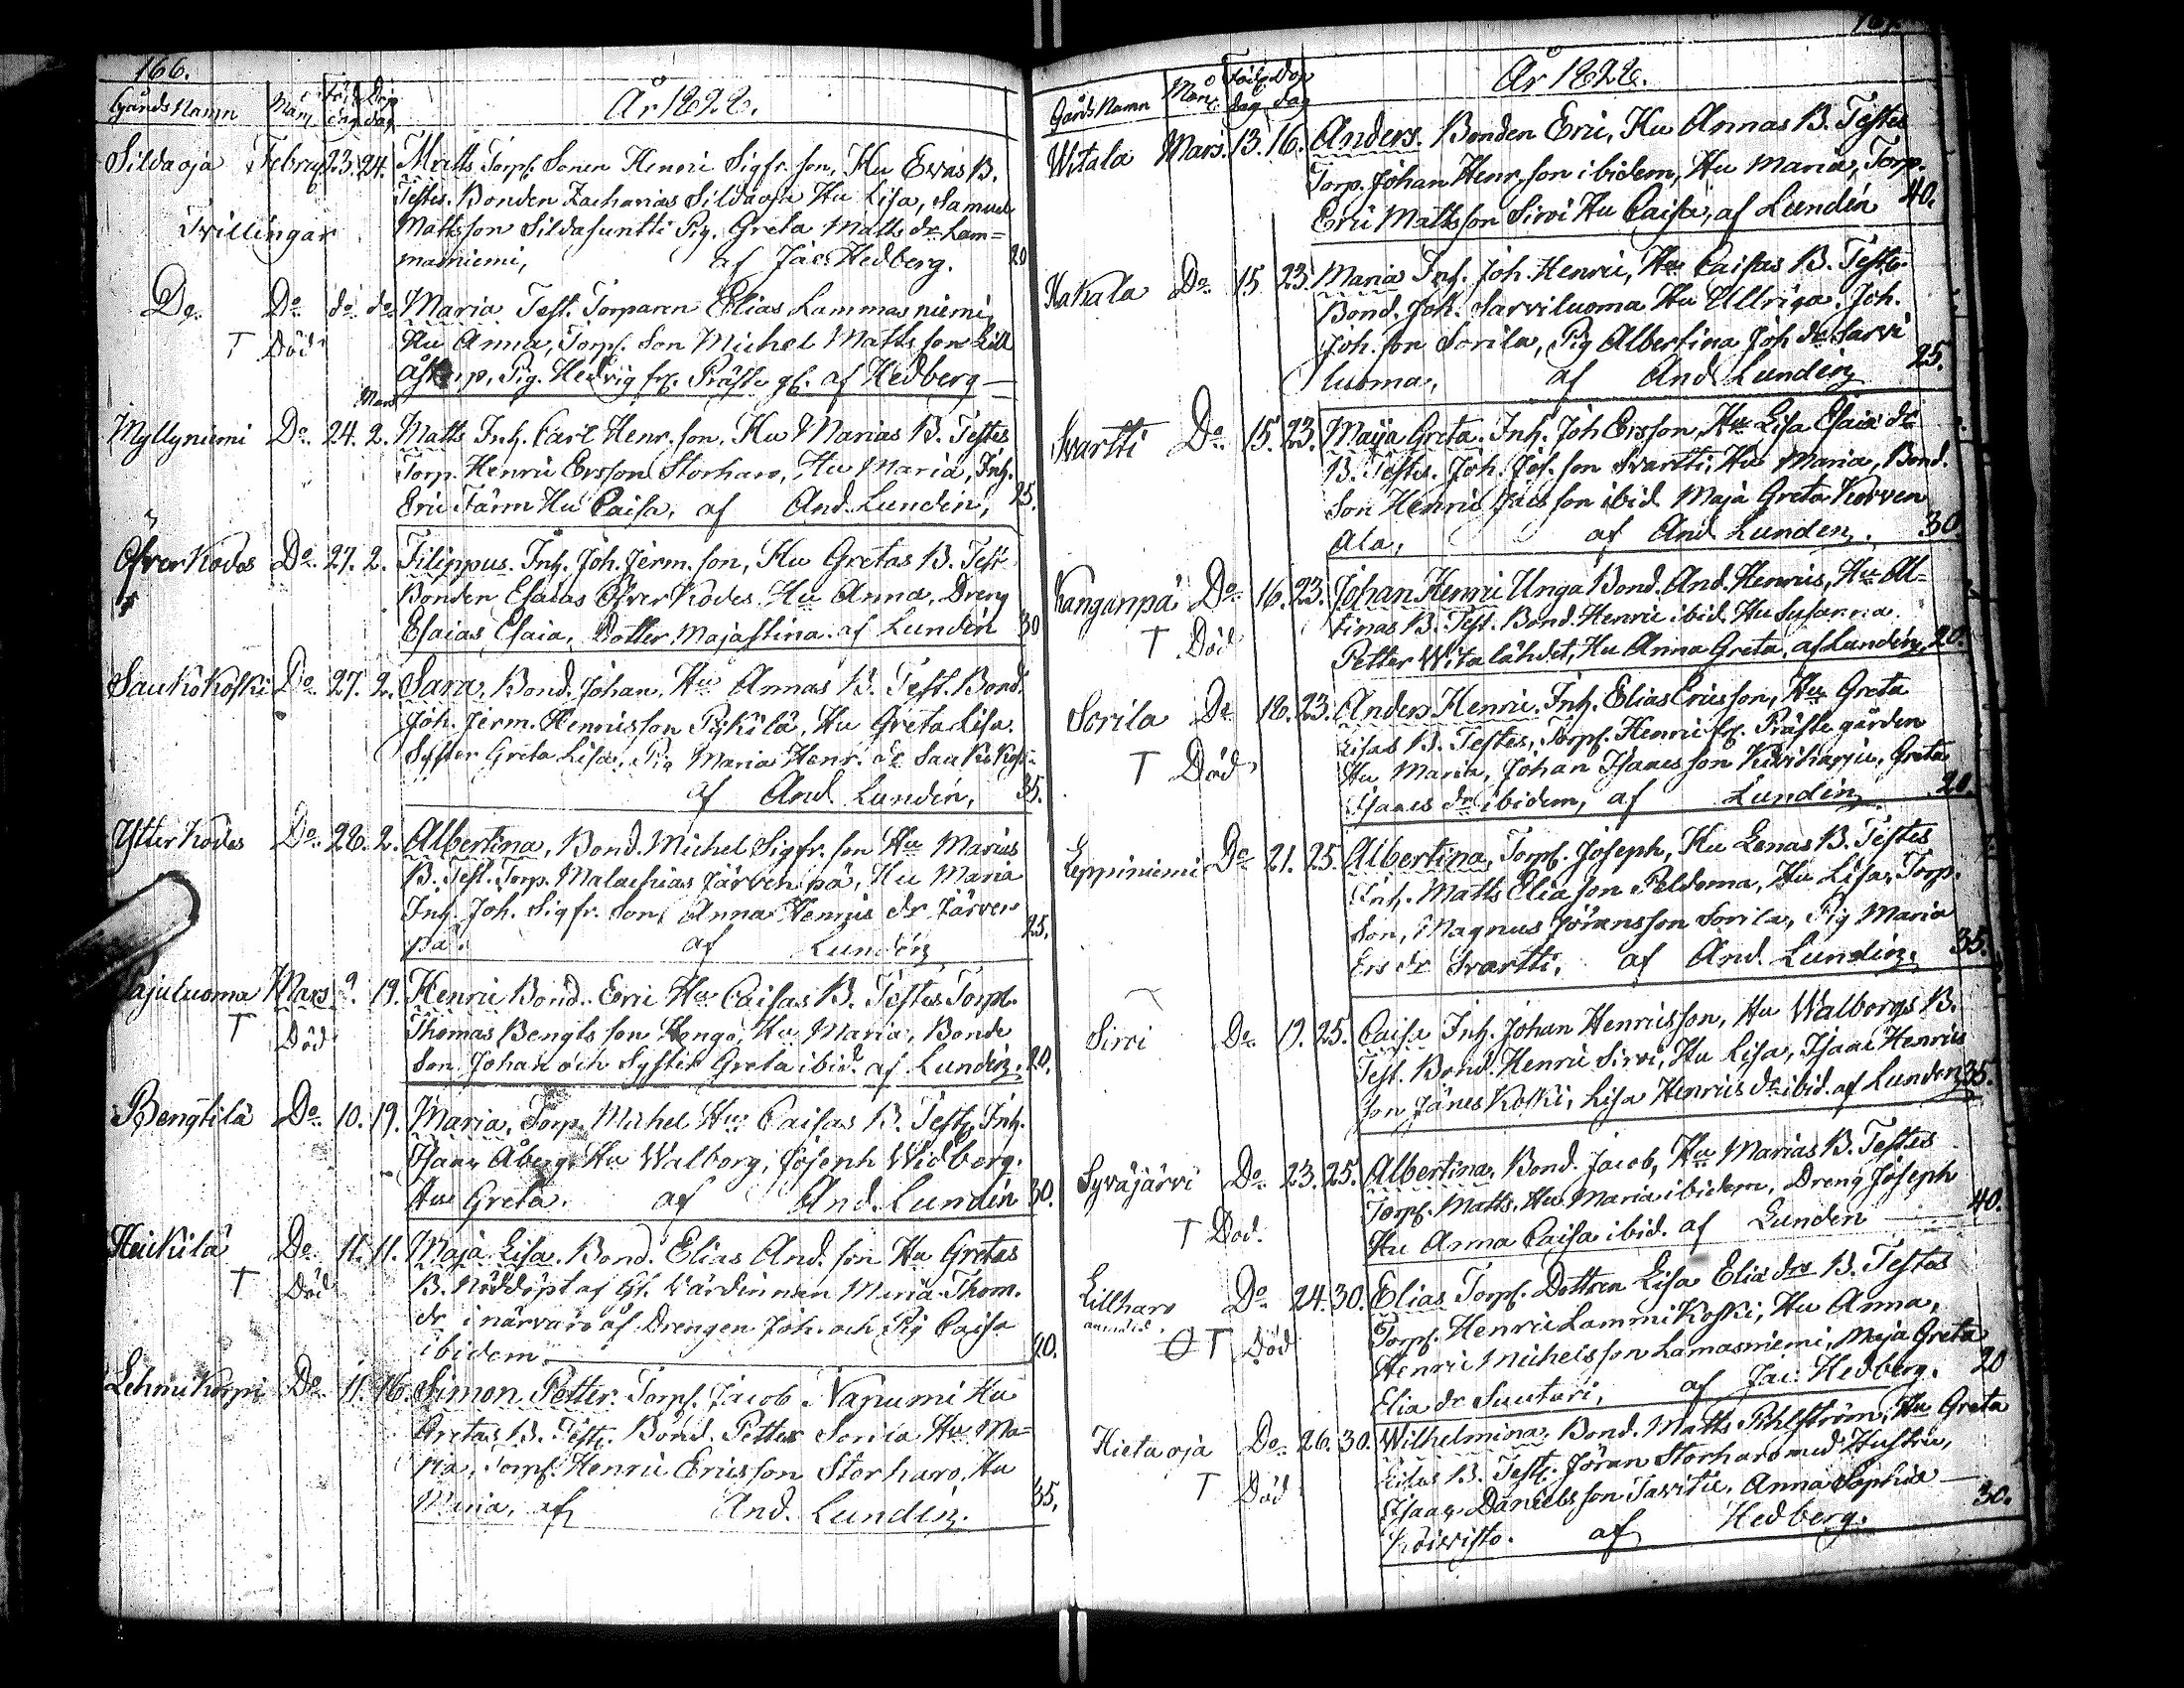 166.
Gårds Namn Mån. Föd. dag Döp dag År 1828.
Sildaoja Februa. 23. 24. Matts Torp. Sonen Henric Sigfr. son, Hu Evas B.
Testes. Bonden Zacharias Sildaoja Hu Lisa, Samuel
Tvillingar Mattsson Sildasuntti Pig. Greta Matts dr Lam=
masniemi, af Jac. Hedberg. 20
Do Do do do Maria Test. Torparen Elias Lammasniemi
T Död Hu Anna, Torp. Son Michel Mattsson Lill
Pig. Hedvig fr. Präste g. af Hedberg —
Mars
Myllyniemi Do. 24. 2. Matts Inh. Carl Henr. son, Hu Marias B. Testes
Torp. Henric Ersson Storharo, Hu Maria, Inh.
Eric Färm Hu Caisa, af And. Lundén, 25.
Öfver Kodes Do. 27. 2. Filippus. Inh. Joh. Jerm. son, Hu Gretas B. Test.
Bonden Esaias Öfver Kodes, Hu Anna, Dreng
Esaias Esaia, Dotter Majastina. af Lundén 30
Saukokoski Do 27. 2. Sara, Bond. Johan, Hu Annas B. Test. Bond.
Joh. Jerm. Henricsson Pykilä, Hu Greta Lisa.
Syster Greta Lisa, Pig Maria Henr. dr Saukokoski
af And. Lundén, 35.
Ytter Kodes Do. 28. 2. Albertina, Bond. Michel Sigfr. son Hu Marias
B. Test. Torp. Malachias Järvenpä, Hu Maria
Inh. Joh. Sigfr. Son, Anna Henrics dr Järven
pä. af Lundén 25.
Pajuluoma Mars 9. 19. Henric Bond. Eric Hu Caisas B. Testes Torp.
T Död Thomas Bengts son Hongo, Hu Maria, Bonde
Son Johan och Syster Greta ibid. af Lundén. 20.
Bengtilä Do. 10. 19. Maria, Torp. Michel Hu Caisas B. Test. Inh.
Isaac Åberg, Hu Walborg, Joseph Widberg.
Hu Greta. af And. Lundén 30.
Heickilä Do. 11. 11. Maja Lisa. Bond. Elias And. son Hu Gretas
T Död B. Nöddöpt af Gl. Värdinnan Maria Thom.
dr i närvaro af Drengen Joh. och Pig Caisa
ibidem 20.
Lehmikorpi Do. 11. 16. Simon Petter. Torp. Jacob Napumi Hu
Gretas B. Test. Bond. Petter Soria Hu Ma=
ria, Torp. Henric Ericsson Storharo, Hu
Maria, af And. Lundén. 35.
Gårds Namn Mån. Föd. dag Döp dag År 1828.
Witala Mars. 13. 16. Anders. Bonden Eric, Hu Annas B. Testes
Torp. Johan Henr. son ibidem, Hu Maria, Torp.
Eric Mattsson Sirvi Hu Caisa, af Lundén 40.
Kakala Do. 15 23. Maria Inh. Joh. Henric, Hu Caisas B. Testes.
Bond. Joh. Sarviluoma Hu Ullrica. Joh.
Joh. son Sorila, Pig Albertina Joh. dr Sarvi
luoma, af And. Lundén 25.
Svartti Do. 15. 23. Maija Greta. Inh. Joh Ersson, Hu Lisa Esaiæ dr
B. Testes. Joh. Jos. son Svartti, Hu Maria, Bond.
Son Henric Jacs son ibid Maja Greta Korven
Ala, af And Lundén. 30.
Kanganpä Do. 16. 23. Johan Henric Unga Bond. And. Henrics, Hu Al=
T Död tinas B. Test. Bond. Henric ibid. Hu Susanna
Petter Witalähdet, Hu Anna Greta. af Lundén, 20.
Sorila Do 18. 23. Anders Henric. Inh. Elias Ericsson, Hu Greta
Lisas B. Testes, Torp. Henric fr. Präste gården
T Död Hu Maria, Johan Isaacs son Kiviharju, Greta
Isaacs dr ibidem, af Lundén 20
Leppiniemi Do 21. 25. Albertina, Torp. Joseph, Hu Lenas B. Testes
Inh. Matts Elia son Peldoma, Hu Lisa, Torp.
Son, Magnus Göransson Sorila, Pig Maria
Ers dr Svartti, af And. Lundén. 35.
Sirvi Do. 19. 25. Caisa Inh. Johan Henricsson, Hu Walborgs B.
Test. Bond. Henric Sirvi, Hu Lisa, Isaac Henrics
son Jäneskoski, Lisa Henrics dr ibid. af Lundén 35.
Syväjärvi Do. 23. 25. Albertina. Bond. Jacob, Hu Marias B. Testes
Torp. Matts, Hu Maria ibidem, Dreng Joseph
T Död. Hu Anna Caisa ibid. af Lundén — 40.
Lillharo Do 24. 30. Elias Torp. Dottren Lisa Elia drs B. Testes
Torp. Henric Lammikoski, Hu Anna,
T Död Henric Michelsson Lamasniemi, Maja Greta
Elia dr Suutari, af Jac. Hedberg. 20
Hietaoja Do. 26. 30. Wilhelmina, Bond. Matts Pihlström, Hu Greta
Lisas B. Test. Jöran Storharo med Hustru,
T Död Isaac Danielsson Tavitie, Anna Sophia —
Koivisto. af Hedberg. 30.